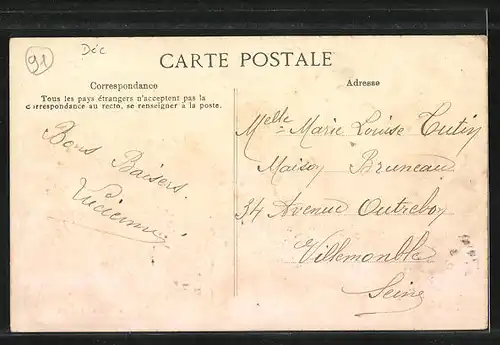 91
Déc
CARTE POSTALE
Correspondance
Tous les pays étrangers n'acceptent pas la
correspondance au recto, se renseigner à la poste.
Adresse
Bons Baisers.
Lucienne
Melle Marie Louise Tutin
Maison Bruneau
34 Avenue Outrebon
Villemonble
Seine